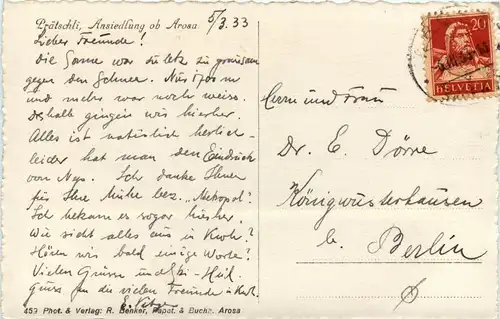 Prätschli, Ansiedlung ob Arosa
5/3. 33
Liebe Freunde!
Die Sonne war zuletzt zu grausam
gegen den Schnee. Nur 1700 m
und mehr war noch weiss.
Deshalb gingen wir hierher.
Alles ist natürlich herrlich -
leider hat man den Eindruck
von Ich danke Ihnen
für Ihre Mühe bez. „Metropol".
Ich bekam es sogar hierher.
Wie sieht alles aus in Kwh.?
Hören wir bald einige Worte?
Vielen Gruss und Ski-Heil.
Gruss an die vielen Freunde in Kwh.
E.
459 Phot. & Verlag: R. Benker, Papet. & Buchh. Arosa
20
HELVETIA
Herrn und Frau
Dr. E. Dörre
Königswusterhausen
b. Berlin